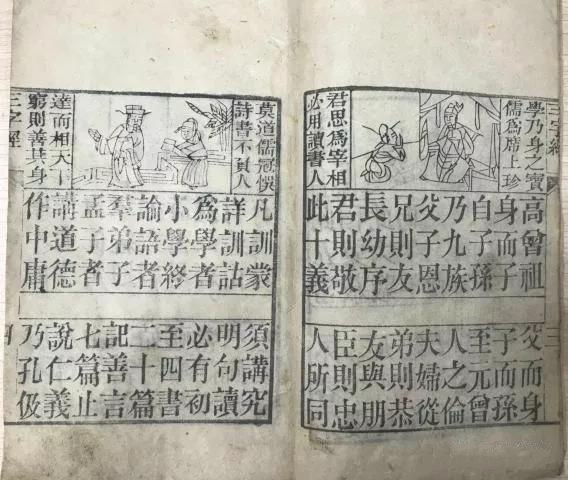 三字經
三
學乃身之寶
儒爲席上珍
君思爲宰相
必用讀書人
高曾祖 父而身
身而子 子而孫
自子孫 至元曾
乃九族 人之倫
父子恩 夫婦從
兄則友 弟則恭
長幼序 友與朋
君則敬 臣則忠
此十義 人所同
莫道儒冠悞
詩書不負人
達而相天下
窮則善其身
凡訓蒙 須講究
詳訓詁 明句讀
爲學者 必有初
小學終 至四書
論語者 二十篇
羣弟子 記善言
孟子者 七篇止
講道德 說仁義
作中庸 乃孔伋
三字經
四